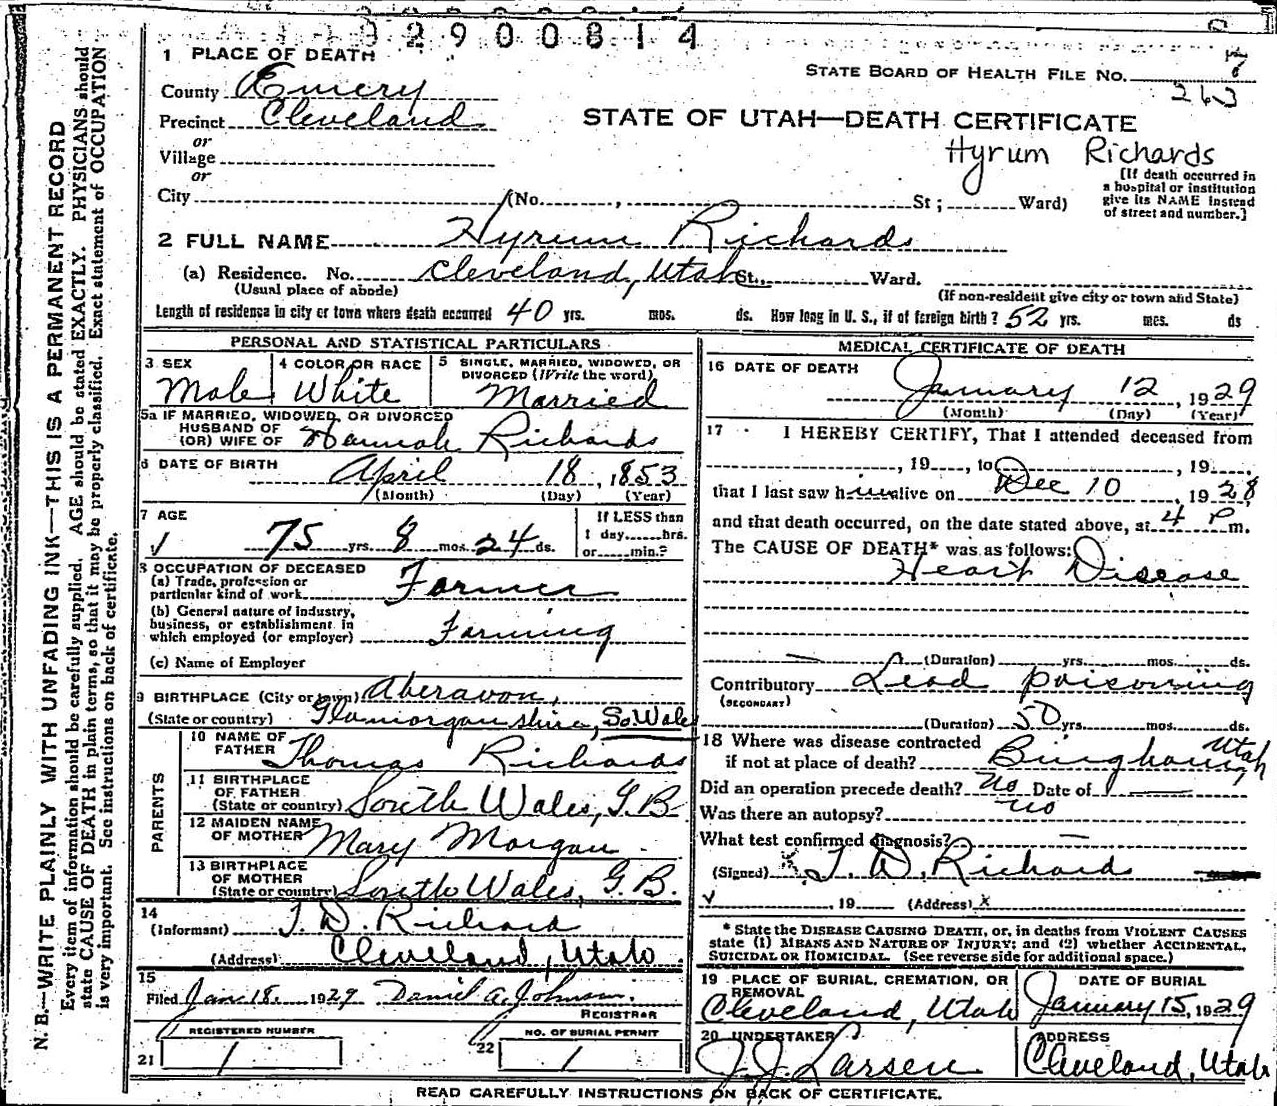 02900814
1 PLACE OF DEATH
STATE BOARD OF HEALTH FILE NO. 7
263
County Emery
Precinct Cleveland
or
Village
or
City (No. , St; Ward)
STATE OF UTAH—DEATH CERTIFICATE
Hyrum Richards
[If death occurred in
a hospital or institution
give its NAME instead
of street and number.]
2 FULL NAME Hyrum Richards
(a) Residence. No. Cleveland, Utah St., Ward.
(Usual place of abode) (If non-resident give city or town and State)
Length of residence in city or town where death occurred 40 yrs. mos. ds. How long in U. S., if of foreign birth? 52 yrs. mos. ds
PERSONAL AND STATISTICAL PARTICULARS
3 SEX
Male
4 COLOR OR RACE
White
5 SINGLE, MARRIED, WIDOWED, OR
DIVORCED (Write the word)
Married
5a IF MARRIED, WIDOWED, OR DIVORCED
HUSBAND OF
(OR) WIFE OF Hannah Richards
6 DATE OF BIRTH April 18, 1853
(Month) (Day) (Year)
7 AGE
75 yrs. 8 mos. 24 ds.
If LESS than
1 day hrs.
or min.?
8 OCCUPATION OF DECEASED
(a) Trade, profession or
particular kind of work Farmer
(b) General nature of industry,
business, or establishment in
which employed (or employer) Farming
(c) Name of Employer
9 BIRTHPLACE (City or town) Aberavon,
(State or country) Glamorganshire, So. Wales
PARENTS
10 NAME OF
FATHER Thomas Richards
11 BIRTHPLACE
OF FATHER
(State or country) South Wales, G.B.
12 MAIDEN NAME
OF MOTHER Mary Morgan
13 BIRTHPLACE
OF MOTHER
(State or country) South Wales, G.B.
14
(Informant) T. D. Richard
(Address) Cleveland, Utah
15
Filed Jan. 18. 1929 Daniel A. Johnson.
REGISTRAR
REGISTERED NUMBER
21 1
NO. OF BURIAL PERMIT
22 1
MEDICAL CERTIFICATE OF DEATH
16 DATE OF DEATH
January 12, 1929
(Month) (Day) (Year)
17 I HEREBY CERTIFY, That I attended deceased from
, 19 , to , 19
that I last saw him alive on Dec 10, 1928
and that death occurred, on the date stated above, at 4 P m.
The CAUSE OF DEATH* was as follows:
Heart Disease
(Duration) yrs. mos. ds.
Contributory Lead poisoning
(SECONDARY)
(Duration) 50 yrs. mos. ds.
18 Where was disease contracted
if not at place of death? Bingham Utah
Did an operation precede death? no Date of
Was there an autopsy? no
What test confirmed diagnosis?
(Signed) T. D. Richards
, 19 (Address) x
* State the DISEASE CAUSING DEATH, or, in deaths from VIOLENT CAUSES
state (1) MEANS AND NATURE OF INJURY; and (2) whether ACCIDENTAL,
SUICIDAL OR HOMICIDAL. (See reverse side for additional space.)
19 PLACE OF BURIAL, CREMATION, OR
REMOVAL
Cleveland, Utah
DATE OF BURIAL
January 15, 1929
20 UNDERTAKER
J. J. Larsen
ADDRESS
Cleveland, Utah
READ CAREFULLY INSTRUCTIONS ON BACK OF CERTIFICATE.
N. B.—WRITE PLAINLY WITH UNFADING INK—THIS IS A PERMANENT RECORD
Every item of information should be carefully supplied. AGE should be stated EXACTLY. PHYSICIANS should
state CAUSE OF DEATH in plain terms, so that it may be properly classified. Exact statement of OCCUPATION
is very important. See instructions on back of certificate.